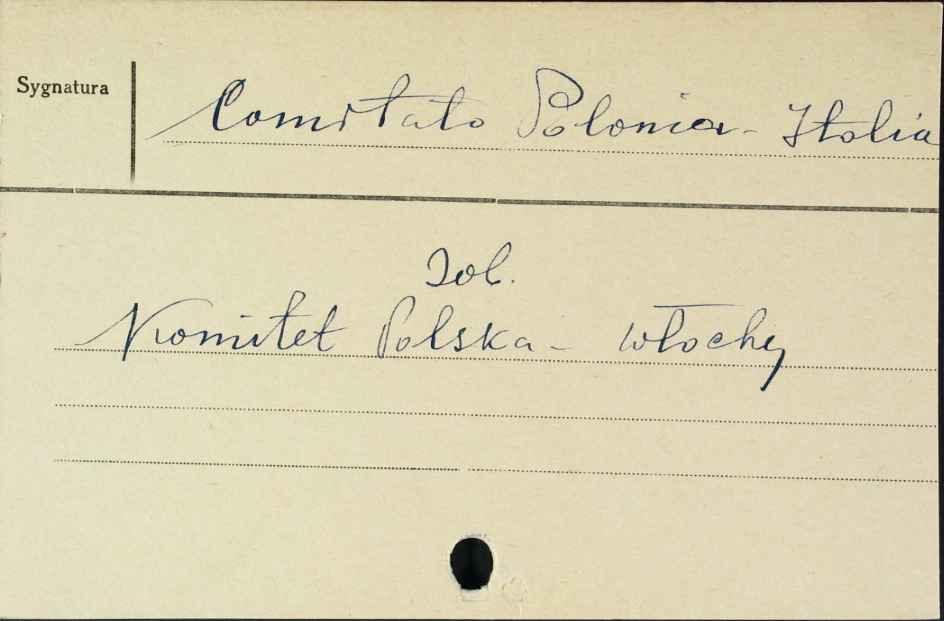 Sygnatura
Comitato Polonia - Italia
Zob.
Komitet Polska - Włochy